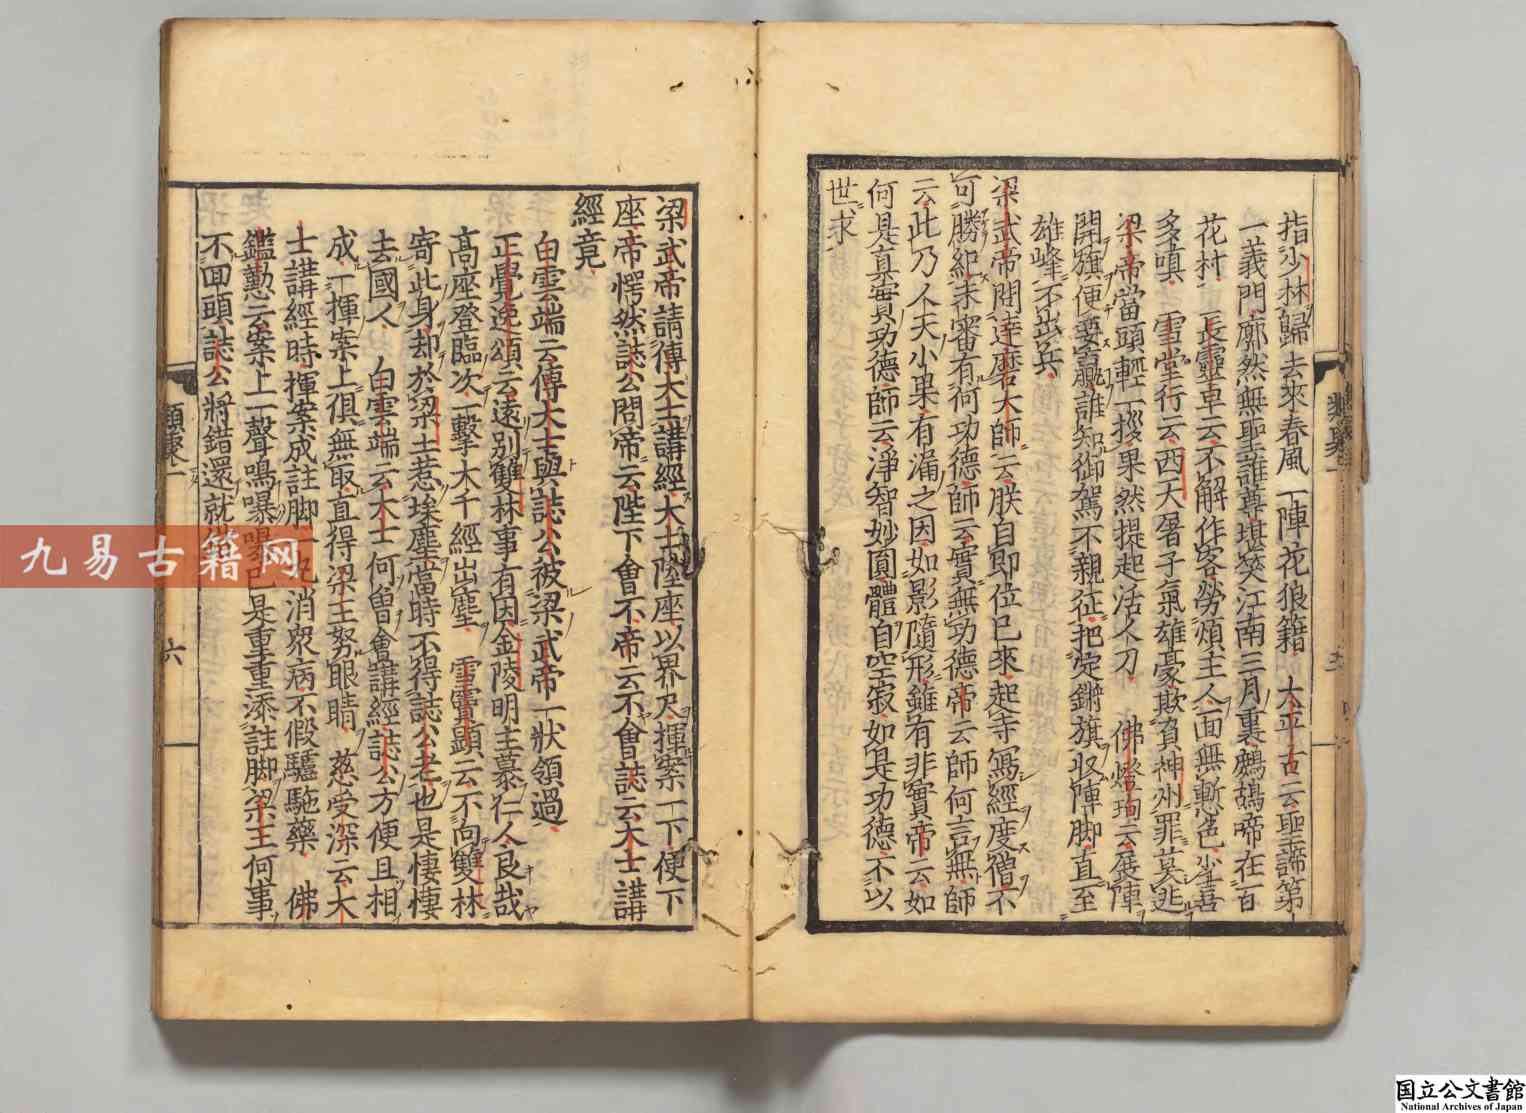 指少林歸去來春風一陣花狼籍 太平古云聖諦第
一義門廓然無聖誰尊堪笑江南三月裏鷓鴣啼在百
花村 長靈卓云不解作客勞煩主人面無慚色少喜
多嗔 雪堂行云西天屠子氣雄豪欺負神州罪莫逃
梁帝當頭輕一拶果然提起活人刀 佛燈珣云展陣
開旗便要贏誰知御駕不親征把定鎗旗收陣脚直至
雄峰不出兵
梁武帝問達磨大師云朕自即位已來起寺寫經度僧不
可勝紀未審有何功德師云實無功德帝云師何言無師
云此乃人天小果有漏之因如影隨形雖有非實帝云如
何是真實功德師云淨智妙圓體自空寂如是功德不以
世求
梁武帝請傅大士講經大士陞座以界尺揮案一下便下
座帝愕然誌公問帝云陛下會不帝云不會誌云大士講
經竟
白雲端云傅大士與誌公被梁武帝一狀領過
正覺逸頌云遠別雙林事有因金陵明主慕仁人良哉
高座登臨次一擊木千經出塵 雪竇顯云不向雙林
寄此身却於梁土惹埃塵當時不得誌公老也是悽悽
去國人 白雲端云大士何曾會講經誌公方便且相
成一揮案上俱無取直得梁王努眼睛 慈受深云大
士講經時揮案成註脚 消衆病不假驢駞藥 佛
鑑懃云案上一聲鳴嚗嚗已是重重添註脚梁王何事
不回頭誌公將錯還就
類聚一
六
九易古籍网
国立公文書館
National Archives of Japan